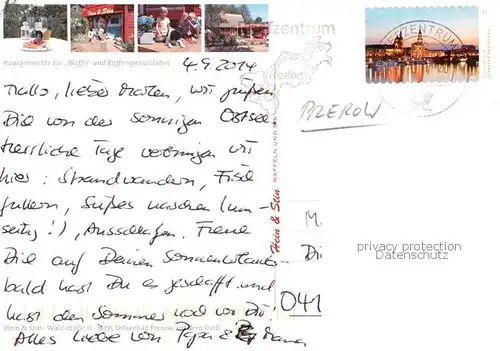 4.9.2014
Hallo, lieber Morten, wir grüßen
Dich von der sonnigen Ostsee
Herrliche Tage verbringen wir
hier: Strandwandern, Fisch
futtern, Süßes naschen (um-
seitig!), Ausschlafen. Freue
Dich auf Deinen Sommerurlaub
bald hast Du es geschafft und
hast den Sommer noch vor Dir.
Alles Liebe von Papa & Mama
hausgemachte Eis-, Waffel- und Kaffeespezialitäten
Hein & Stin · Waldstraße 11 · 18375 Ostseebad Prerow auf dem Darß
Hein & Stin WAFFELN UND EIS
Briefzentrum
BRIEFZENTRUM
45
PREROW
M
Di
041
privacy protection
Datenschutz